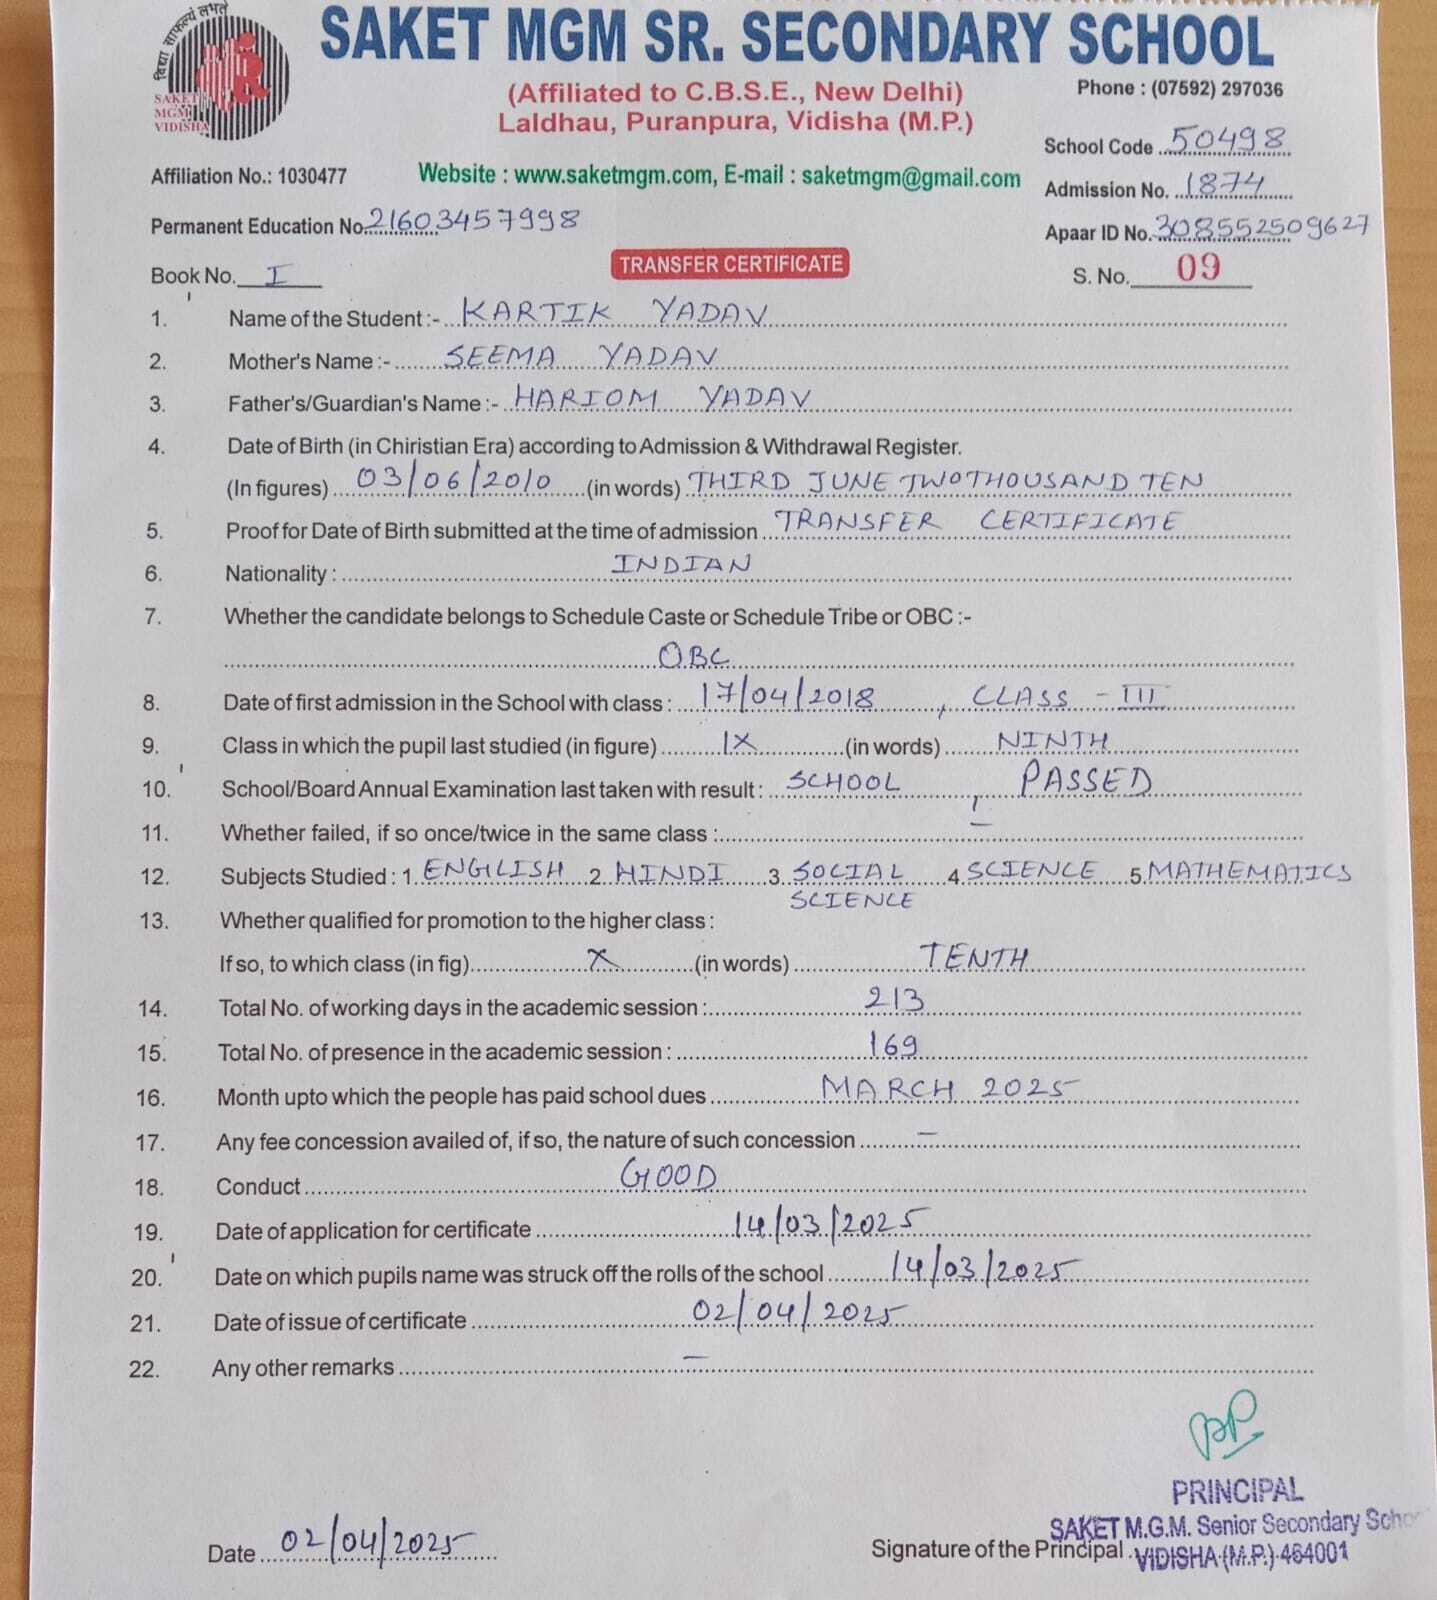 विद्या साफल्यं लभते
SAKET
MGM
VIDISHA
SAKET MGM SR. SECONDARY SCHOOL
(Affiliated to C.B.S.E., New Delhi)
Phone : (07592) 297036
Laldhau, Puranpura, Vidisha (M.P.)
School Code 50498
Affiliation No.: 1030477
Website : www.saketmgm.com, E-mail : saketmgm@gmail.com
Admission No. 1874
Permanent Education No. 21603457998
Apaar ID No. 308552509627
Book No. I
TRANSFER CERTIFICATE
S. No. 09
1. Name of the Student :- KARTIK YADAV
2. Mother's Name :- SEEMA YADAV
3. Father's/Guardian's Name :- HARIOM YADAV
4. Date of Birth (in Chiristian Era) according to Admission & Withdrawal Register.
(In figures) 03/06/2010 (in words) THIRD JUNE TWOTHOUSAND TEN
5. Proof for Date of Birth submitted at the time of admission TRANSFER CERTIFICATE
6. Nationality : INDIAN
7. Whether the candidate belongs to Schedule Caste or Schedule Tribe or OBC :-
OBC
8. Date of first admission in the School with class : 17/04/2018 , CLASS - III
9. Class in which the pupil last studied (in figure) IX (in words) NINTH
10. School/Board Annual Examination last taken with result : SCHOOL , PASSED
11. Whether failed, if so once/twice in the same class : —
12. Subjects Studied : 1. ENGLISH 2. HINDI 3. SOCIAL SCIENCE 4. SCIENCE 5. MATHEMATICS
13. Whether qualified for promotion to the higher class :
If so, to which class (in fig) X (in words) TENTH
14. Total No. of working days in the academic session : 213
15. Total No. of presence in the academic session : 169
16. Month upto which the people has paid school dues MARCH 2025
17. Any fee concession availed of, if so, the nature of such concession —
18. Conduct GOOD
19. Date of application for certificate 14/03/2025
20. Date on which pupils name was struck off the rolls of the school 14/03/2025
21. Date of issue of certificate 02/04/2025
22. Any other remarks —
PRINCIPAL
SAKET M.G.M. Senior Secondary School
Date 02/04/2025
Signature of the Principal
VIDISHA (M.P.) 464001